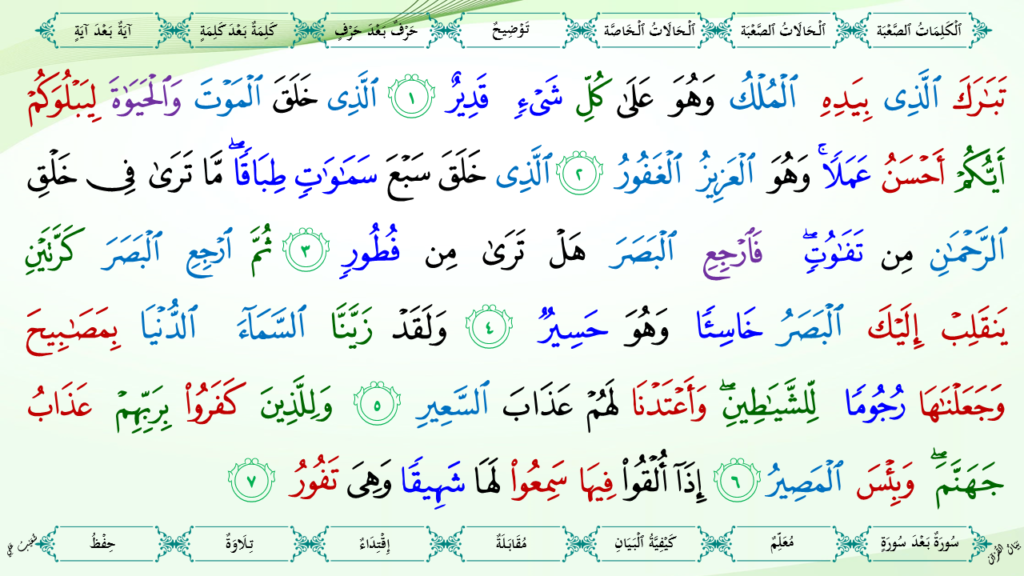 اَلْكَلِمَاتُ الصَّعْبَة اَلْحَالَاتُ الصَّعْبَة اَلْحَالَاتُ الْخَاصَّة تَوْضِيحٌ حَرْفٌ بَعْدَ حَرْفٍ كَلِمَةٌ بَعْدَ كَلِمَةٍ آيَةٌ بَعْدَ آيَةٍ
تَبَٰرَكَ ٱلَّذِى بِيَدِهِ ٱلْمُلْكُ وَهُوَ عَلَىٰ كُلِّ شَىْءٍ قَدِيرٌ ١ ٱلَّذِى خَلَقَ ٱلْمَوْتَ وَٱلْحَيَوٰةَ لِيَبْلُوَكُمْ
أَيُّكُمْ أَحْسَنُ عَمَلًاۚ وَهُوَ ٱلْعَزِيزُ ٱلْغَفُورُ ٢ ٱلَّذِى خَلَقَ سَبْعَ سَمَٰوَٰتٍ طِبَاقًاۖ مَّا تَرَىٰ فِى خَلْقِ
ٱلرَّحْمَٰنِ مِن تَفَٰوُتٍۖ فَٱرْجِعِ ٱلْبَصَرَ هَلْ تَرَىٰ مِن فُطُورٍ ٣ ثُمَّ ٱرْجِعِ ٱلْبَصَرَ كَرَّتَيْنِ
يَنقَلِبْ إِلَيْكَ ٱلْبَصَرُ خَاسِئًا وَهُوَ حَسِيرٌ ٤ وَلَقَدْ زَيَّنَّا ٱلسَّمَآءَ ٱلدُّنْيَا بِمَصَٰبِيحَ
وَجَعَلْنَٰهَا رُجُومًا لِّلشَّيَٰطِينِۖ وَأَعْتَدْنَا لَهُمْ عَذَابَ ٱلسَّعِيرِ ٥ وَلِلَّذِينَ كَفَرُوا۟ بِرَبِّهِمْ عَذَابُ
جَهَنَّمَۖ وَبِئْسَ ٱلْمَصِيرُ ٦ إِذَآ أُلْقُوا۟ فِيهَا سَمِعُوا۟ لَهَا شَهِيقًا وَهِىَ تَفُورُ ٧
سُورَةٌ بَعْدَ سُورَةٍ مُعَلِّمٌ كَيْفِيَّةُ الْبَيَانِ مُقَابَلَةٌ إِقْتِدَاءٌ تِلَاوَةٌ حِفْظُ
بَيَانُ الْقُرْآن